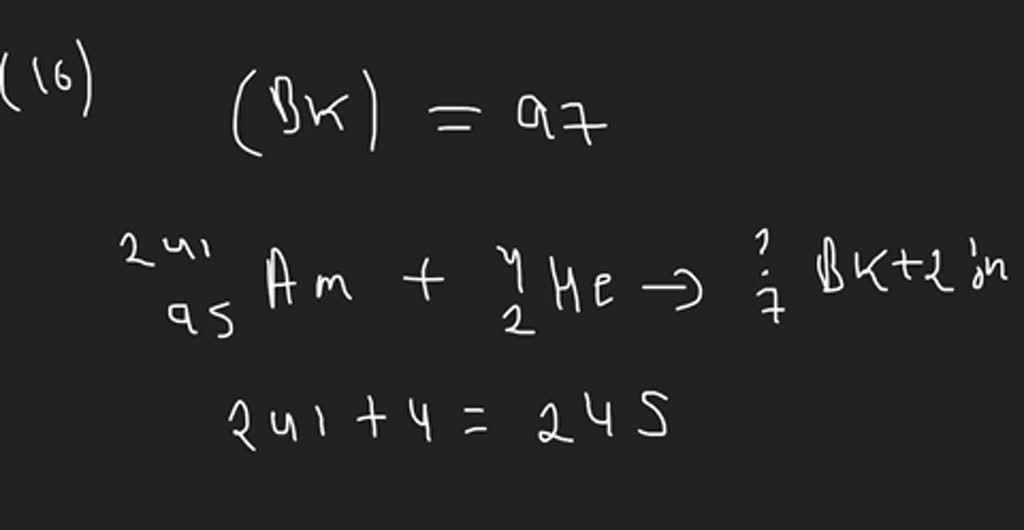 (16) (BK) = 97
²⁴¹₉₅ Am + ⁴₂ He → ?₇ BK + 2 ¹₀n
241 + 4 = 245